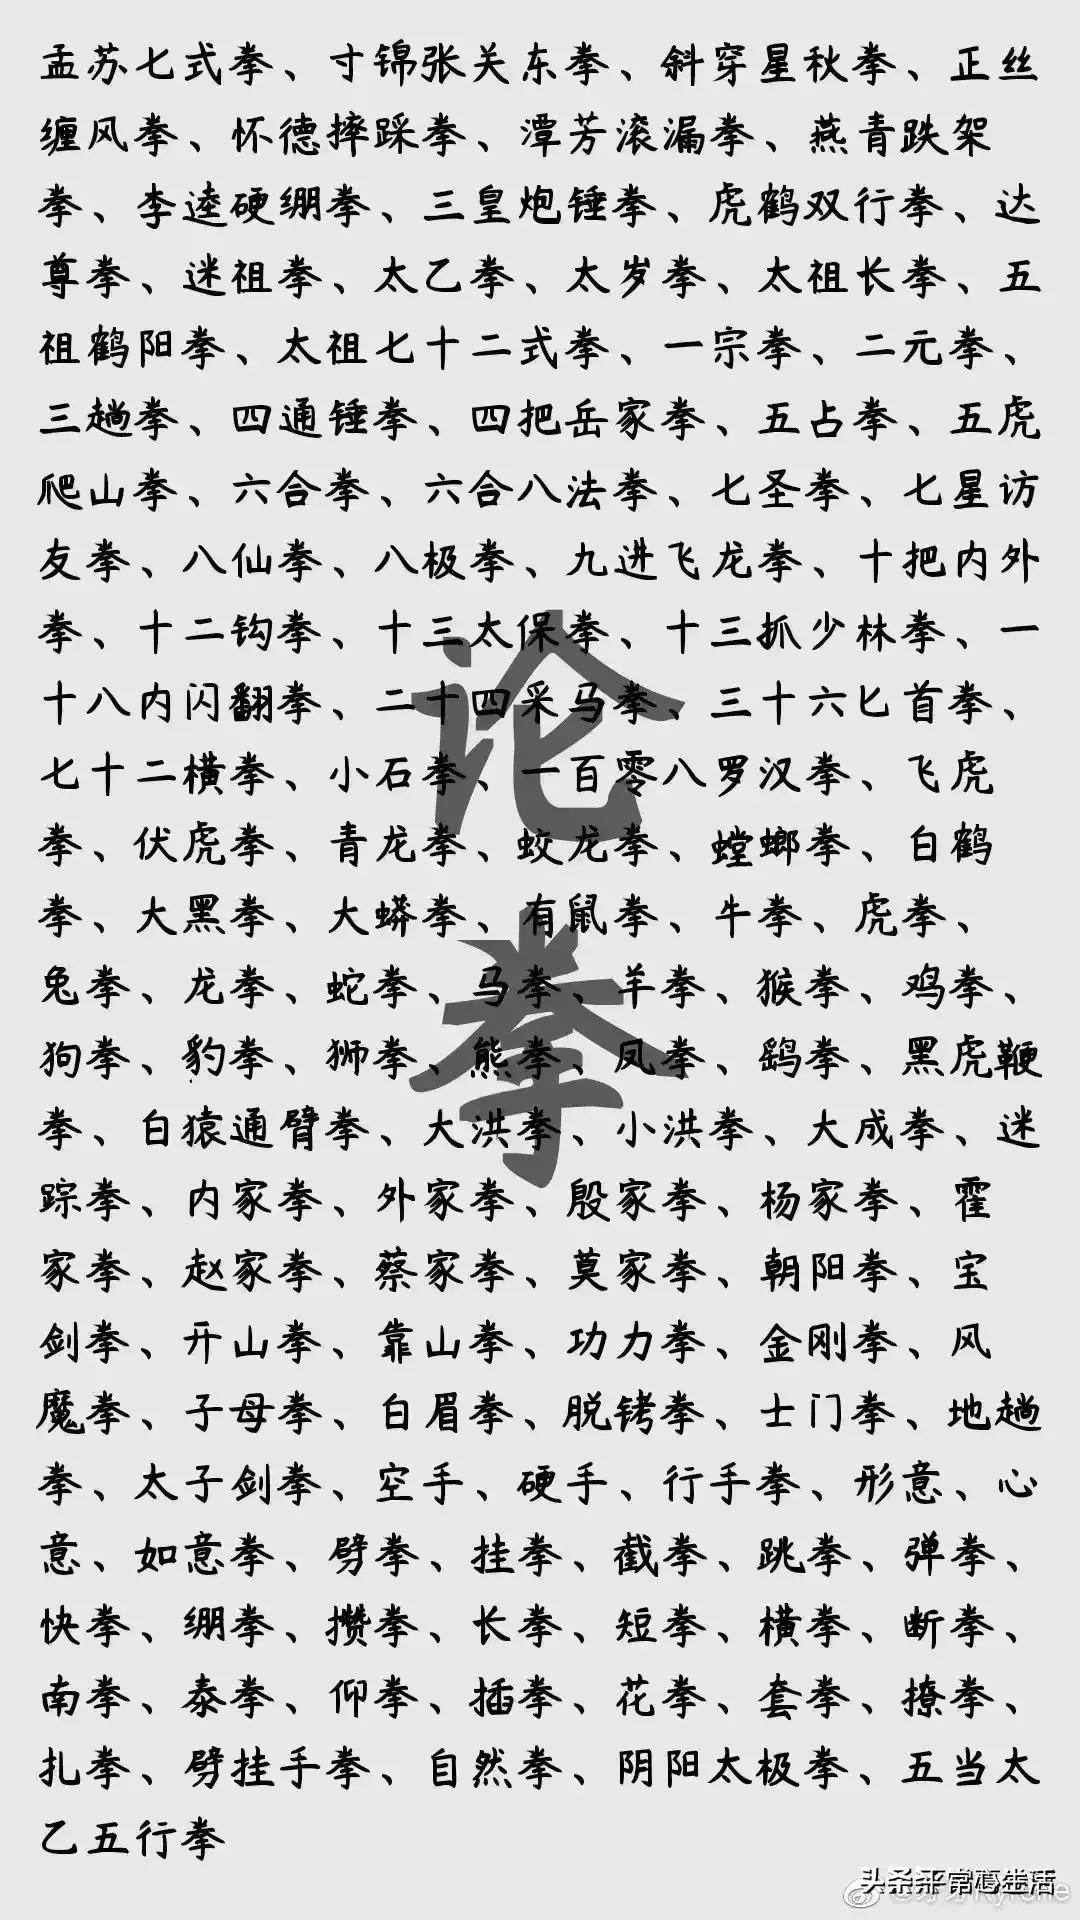 孟苏七式拳、寸锦张关东拳、斜穿星秋拳、正丝
缠风拳、怀德摔踩拳、潭芳滚漏拳、燕青跌架
拳、李逵硬绷拳、三皇炮锤拳、虎鹤双行拳、达
尊拳、迷祖拳、太乙拳、太岁拳、太祖长拳、五
祖鹤阳拳、太祖七十二式拳、一宗拳、二元拳、
三趟拳、四通锤拳、四把岳家拳、五占拳、五虎
爬山拳、六合拳、六合八法拳、七圣拳、七星访
友拳、八仙拳、八极拳、九进飞龙拳、十把内外
拳、十二钩拳、十三太保拳、十三抓少林拳、一
十八内闪翻拳、二十四采马拳、三十六匕首拳、
七十二横拳、小石拳、一百零八罗汉拳、飞虎
拳、伏虎拳、青龙拳、蛟龙拳、螳螂拳、白鹤
拳、大黑拳、大蟒拳、有鼠拳、牛拳、虎拳、
兔拳、龙拳、蛇拳、马拳、羊拳、猴拳、鸡拳、
狗拳、豹拳、狮拳、熊拳、凤拳、鹞拳、黑虎鞭
拳、白猿通臂拳、大洪拳、小洪拳、大成拳、迷
踪拳、内家拳、外家拳、殷家拳、杨家拳、霍
家拳、赵家拳、蔡家拳、莫家拳、朝阳拳、宝
剑拳、开山拳、靠山拳、功力拳、金刚拳、风
魔拳、子母拳、白眉拳、脱铐拳、士门拳、地趟
拳、太子剑拳、空手、硬手、行手拳、形意、心
意、如意拳、劈拳、挂拳、截拳、跳拳、弹拳、
快拳、绷拳、攒拳、长拳、短拳、横拳、断拳、
南拳、泰拳、仰拳、插拳、花拳、套拳、撩拳、
扎拳、劈挂手拳、自然拳、阴阳太极拳、五当太
乙五行拳
论
拳
头条 平常心生活